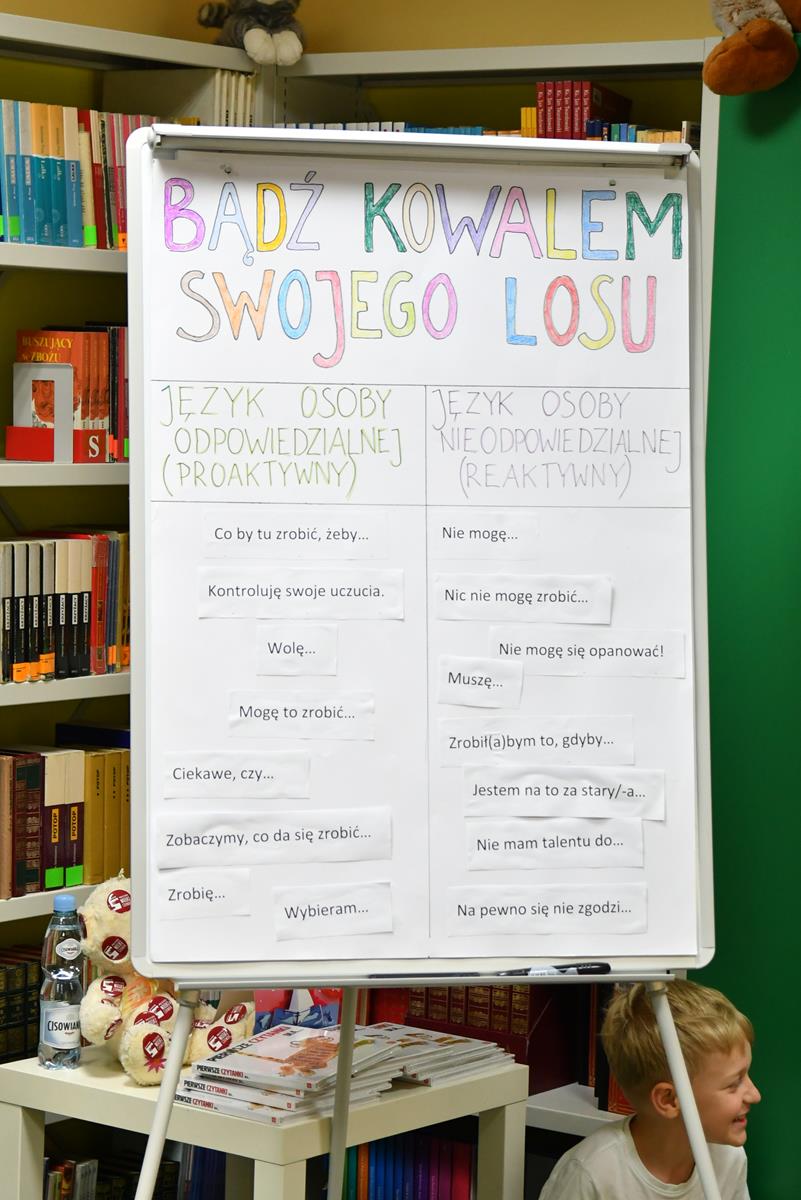 BĄDŹ KOWALEM
SWOJEGO LOSU
JĘZYK OSOBY
ODPOWIEDZIALNEJ
(PROAKTYWNY)
JĘZYK OSOBY
NIEODPOWIEDZIALNEJ
(REAKTYWNY)
Co by tu zrobić, żeby...
Kontroluję swoje uczucia.
Wolę...
Mogę to zrobić...
Ciekawe, czy...
Zobaczymy, co da się zrobić...
Zrobię...
Wybieram...
Nie mogę...
Nic nie mogę zrobić...
Nie mogę się opanować!
Muszę...
Zrobił(a)bym to, gdyby...
Jestem na to za stary/-a...
Nie mam talentu do...
Na pewno się nie zgodzi...
BUSZUJĄCY
W ZBOŻU
S
POTOP
POTOP
CISOWIAN
PIERWSZE CZYTANKI
PIERWSZE CZYTANKI
PIERWSZE CZYTANKI